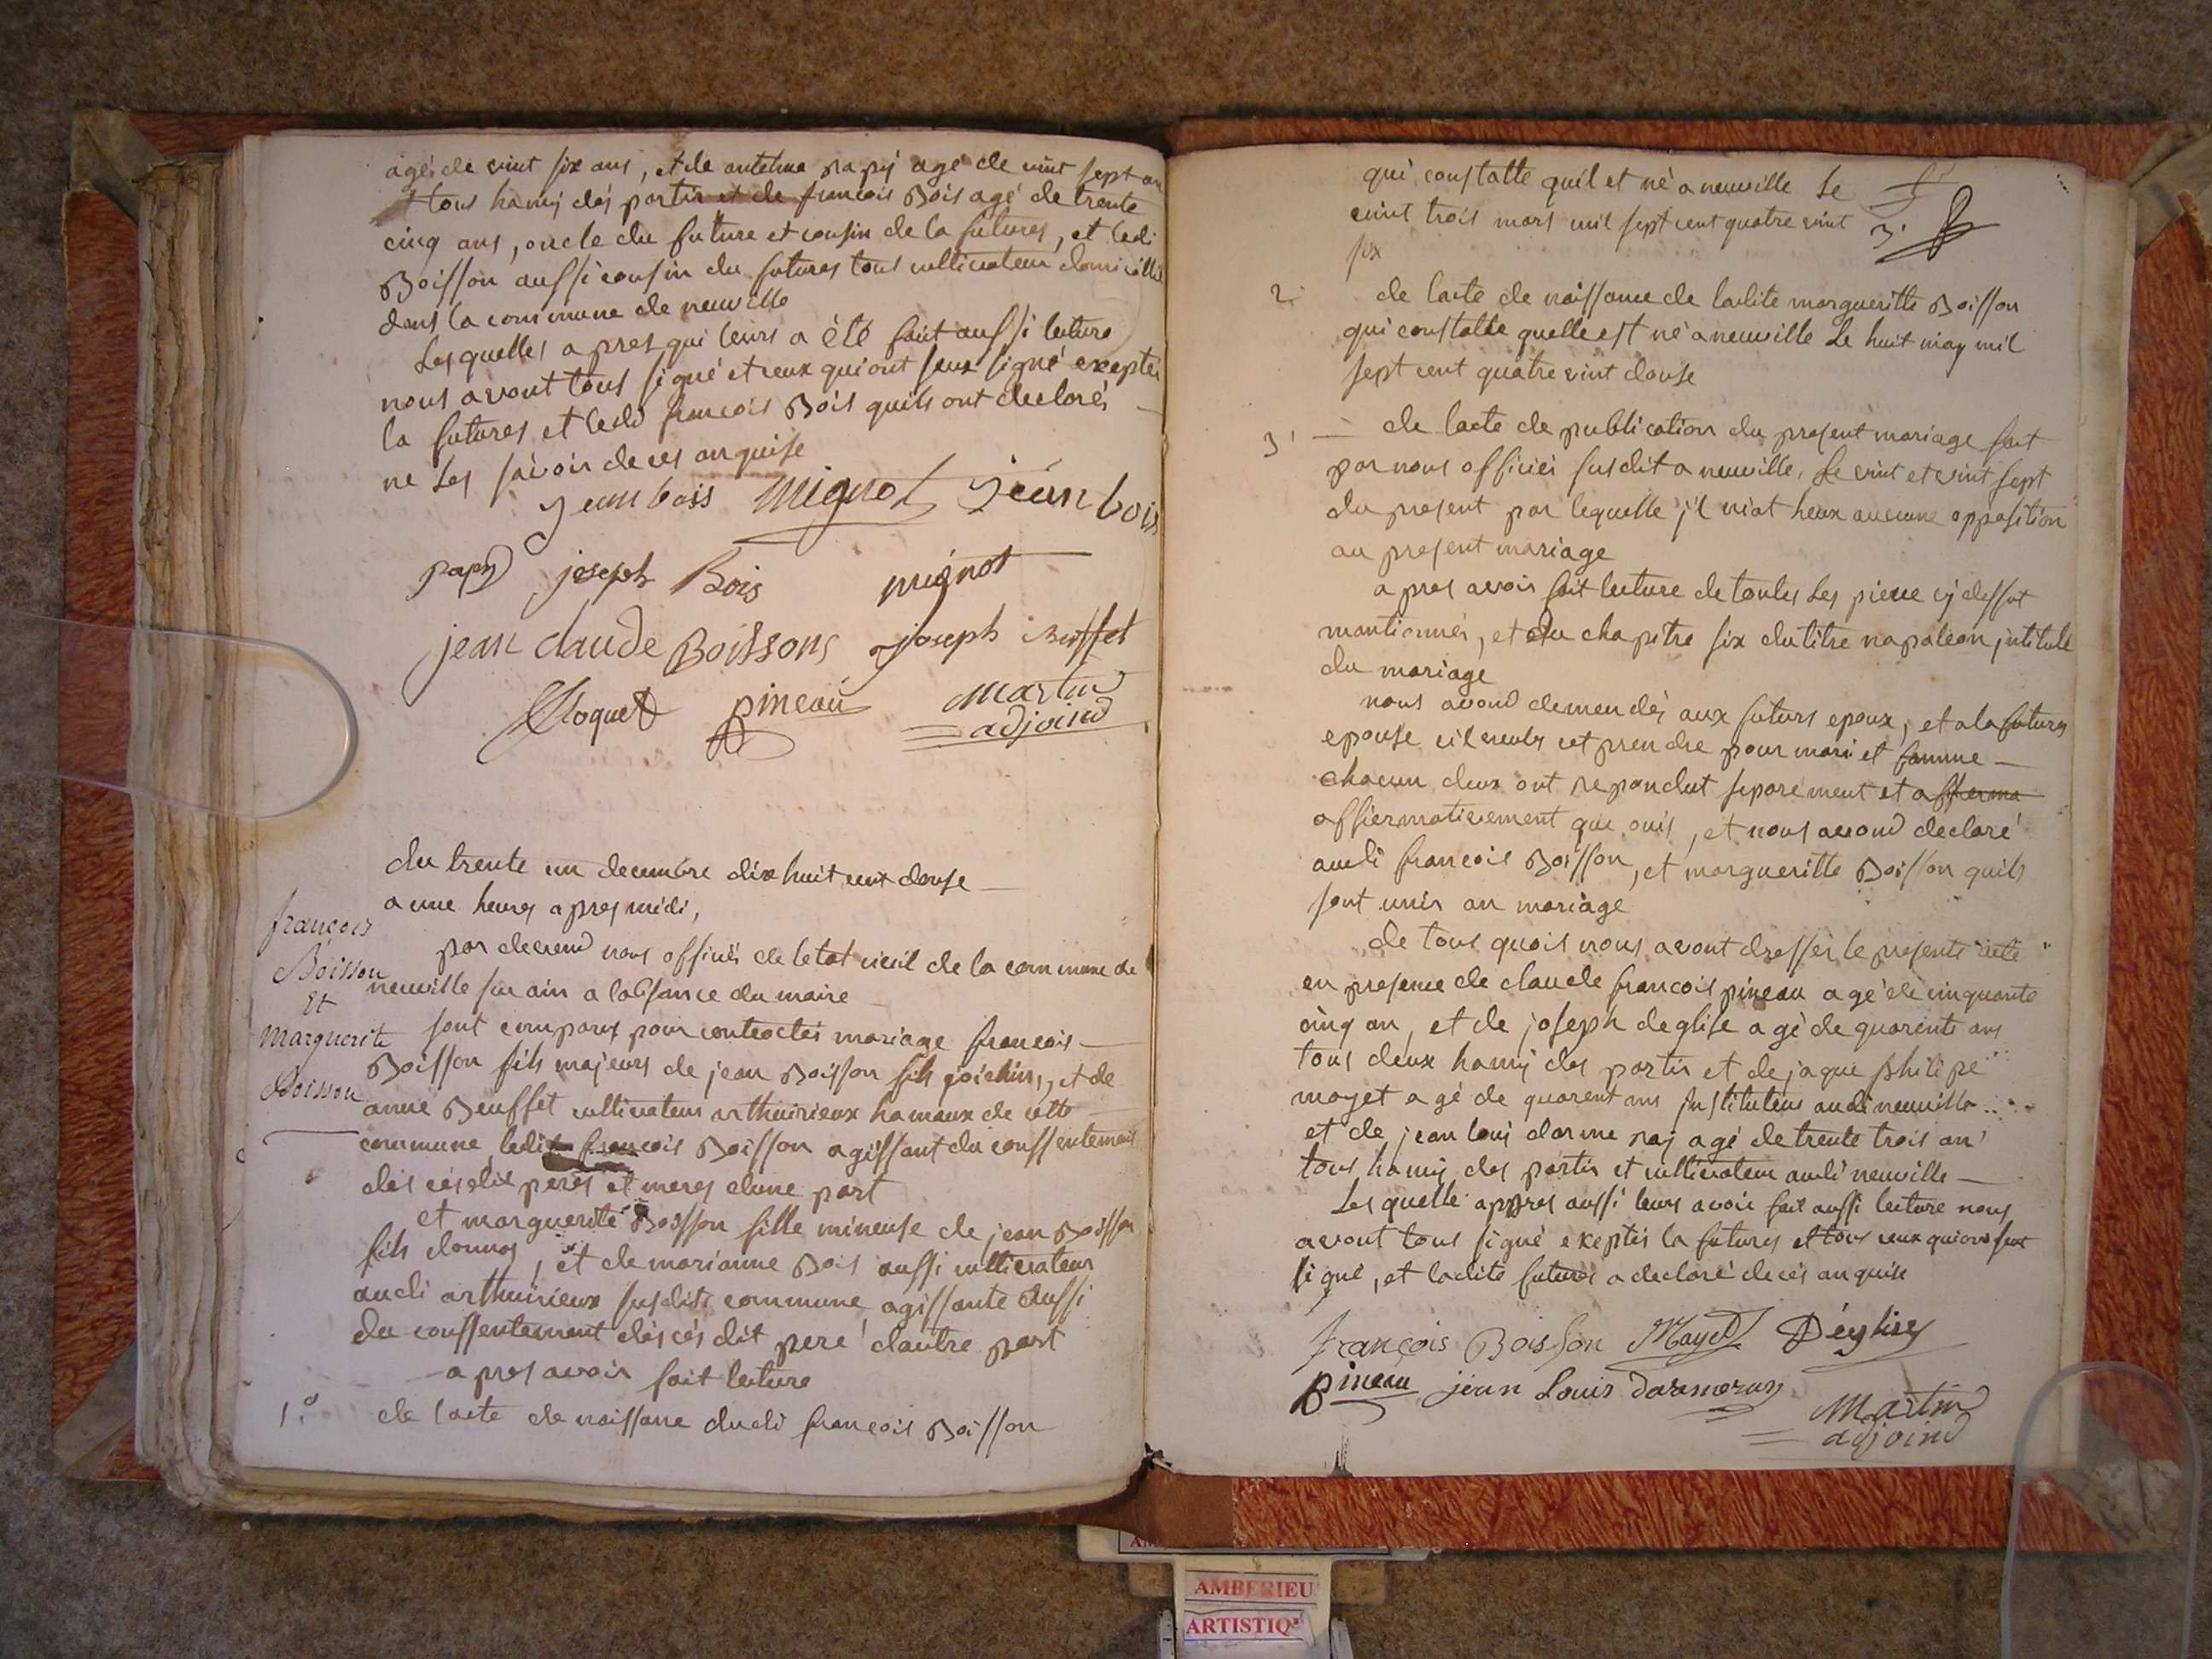 agé de vint six ans, et de antelme papy agé de vint sept an
tous hamis des partis et de francois Bois agé de trente
cinq ans, oncle du future et cousin de la futures, et ledi
Boisson aussi cousin du futures tous cultivateur domicillié
dans la commune de neuville
Lesquelles apres qui leurs a été fait aussi lecture
nous avont tous signé et ceux qui ont seux signé exceptés
la futures et ledi francois Bois quils ont declarés
ne Les savoir de ces anquise
Jean bois Mignot Jean bois
papy joseph Bois mignot
jean claude Boissons joseph Buffet
Cloquet pineau Martin
adjoind
du trente un decembre dix huit cent douse
a une heures apres midi,
francois
Boisson
Et
Marguerite
Boisson
par devend nous officiés de letat civil de la commune de
neuville sur ain a labsance du maire
sont comparus pour contractés mariage francois
Boisson fils majeurs de jean Boisson fils joichim, et de
anne Beuffet cultivateur arthuirieux hamaux de cette
commune ledit francois Boisson agissant du conssentement
des cés dit peres et meres dune part
et marguerite Boisson fille mineuse de jean Boisson
fils donnos, et de marianne Bois aussi cultivateur
audi arthuirieux susdite commune agissante aussi
du conssentement des cés dit pere dautre part
apres avoir fait lecture
1.° de lacte de naissane dudi francois Boisson
qui constatte quil et né a neuville Le
vint trois mars mil sept cent quatre vint
six
2. de lacte de naissance de ladite margueritte Boisson
qui constatte quelle est né a neuville Le huit may mil
sept cent quatre vint douse
3' de lacte de publication du present mariage fait
par nous officiér susdit a neuville, Le vint et vint sept
du present par lequelle j'l niat heux aucune opposition
au present mariage
apres avoir fait lecture de toutes Les piece cy dessut
mantionnés, et du chapitre six du titre napaleon jntitulé
du mariage
nous avond demendés aux futurs epoux, et a la futures
epouse cil veules cet prendre pour mari et famme
chacun deux ont repondut separement et afferma
affiermativement que ouis, et nous avond declaré
audi francois Boisson, et marguerite Boisson quils
sont unis an mariage
de tous quois nous avont dressér le presente acte
en presence de claude francois pineau agé de cinquante
cinq an, et de joseph deglise agé de quarente ans
tous deux hamy des partis et de jaque philipe
mayet agé de quarent ans jnstituteur audi neuville
et de jean louj darme raj agé de trente trois an
tous hamis des partis et cultivateur audi neuville
Les quelle appres aussi leurs avoir fait aussi lecture nous
avont tous signé exeptés la futures et tous ceux qui ons seut
signé, et ladite futures a declaré de cés anquise
françois Boisson Mayet Déglise
pineau jean Louis darmeray
Martin
adjoind
AMBERIEU
ARTISTIQ